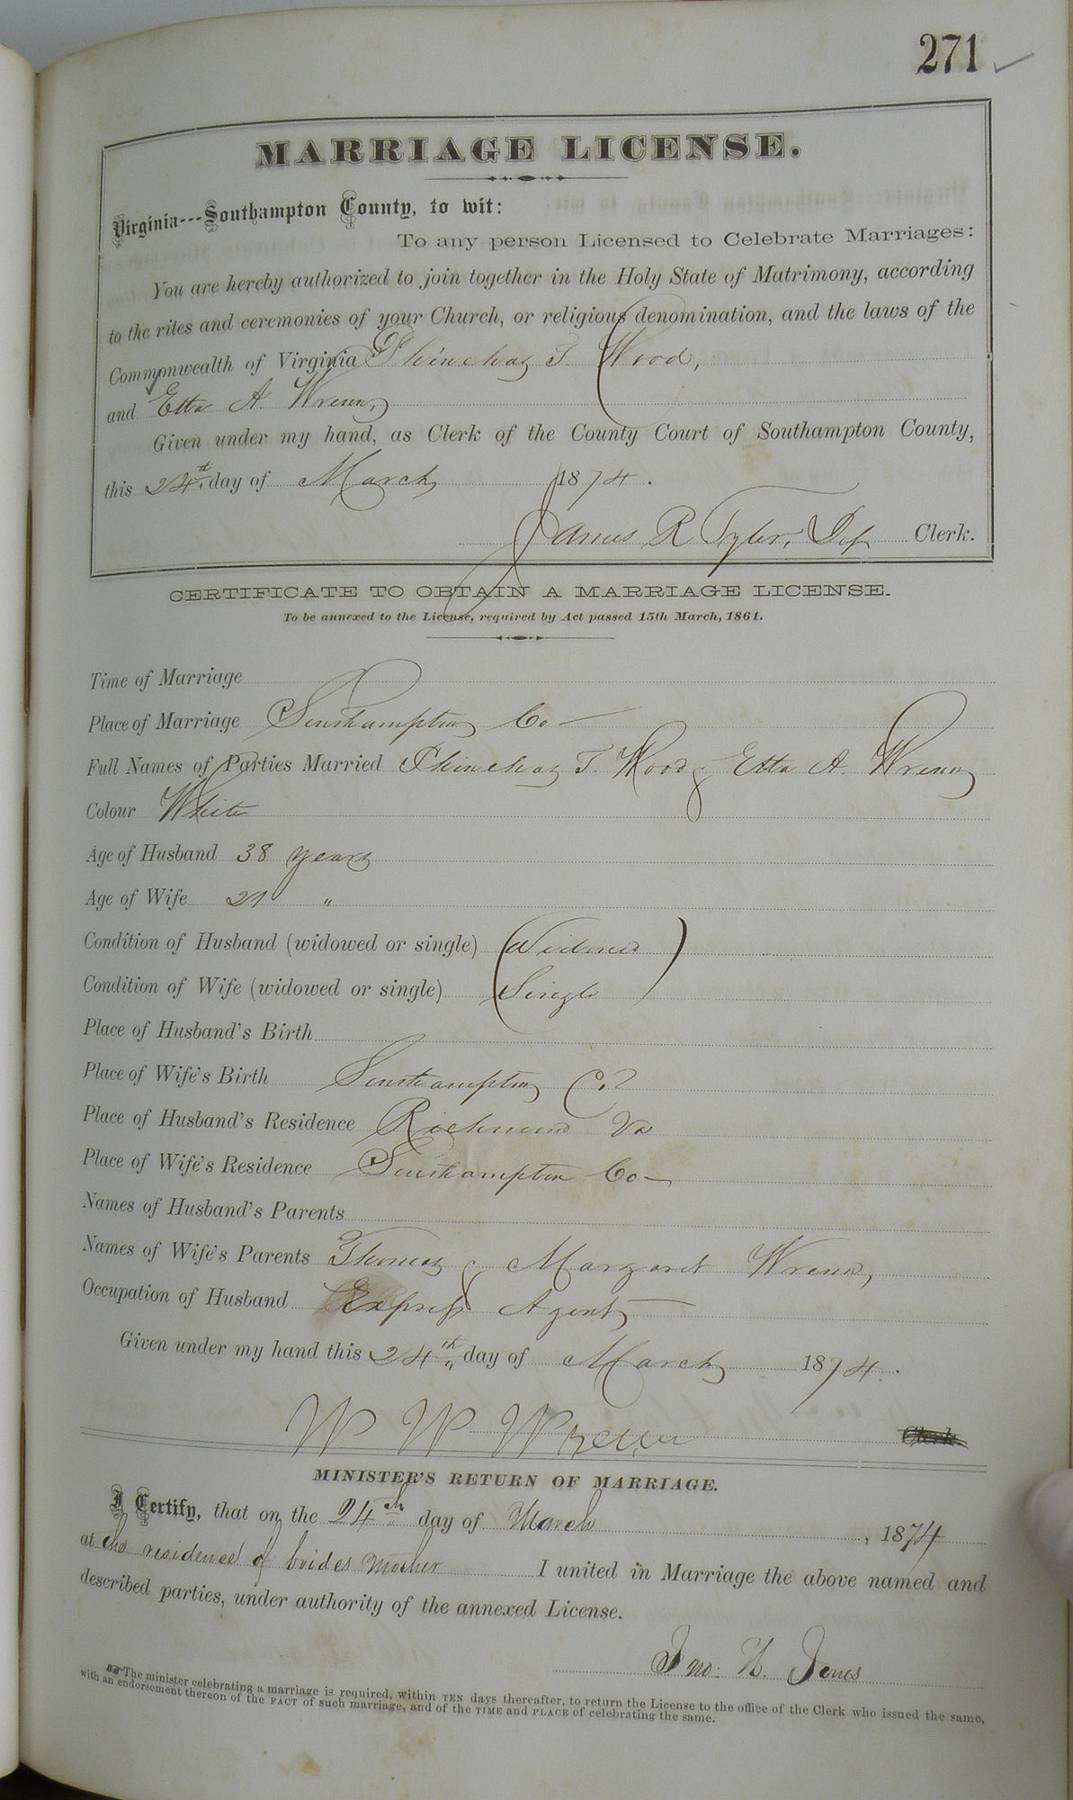 271
MARRIAGE LICENSE.
Virginia---Southampton County, to wit:
To any person Licensed to Celebrate Marriages:
You are hereby authorized to join together in the Holy State of Matrimony, according
to the rites and ceremonies of your Church, or religious denomination, and the laws of the
Commonwealth of Virginia Phinehas T. Wood,
and Etta A. Wrenn,
Given under my hand, as Clerk of the County Court of Southampton County,
this 24th day of March 1874.
James R Tyler, Dep Clerk.
CERTIFICATE TO OBTAIN A MARRIAGE LICENSE.
To be annexed to the License, required by Act passed 15th March, 1861.
Time of Marriage
Place of Marriage Southampton Co—
Full Names of Parties Married Phinehas T. Wood & Etta A. Wrenn
Colour White
Age of Husband 38 years
Age of Wife 21 "
Condition of Husband (widowed or single) Widowed
Condition of Wife (widowed or single) Single
Place of Husband's Birth
Place of Wife's Birth Southampton Co
Place of Husband's Residence Richmond Va
Place of Wife's Residence Southampton Co—
Names of Husband's Parents
Names of Wife's Parents Thomas & Margaret Wrenn,
Occupation of Husband Express Agent—
Given under my hand this 24th day of March 1874.
W W Wrenn Clerk.
MINISTER'S RETURN OF MARRIAGE.
I Certify, that on the 24th day of March, 1874
at the residence of brides mother I united in Marriage the above named and
described parties, under authority of the annexed License.
Jno. Jones
The minister celebrating a marriage is required, within TEN days thereafter, to return the License to the office of the Clerk who issued the same,
with an endorsement thereon of the FACT of such marriage, and of the TIME and PLACE of celebrating the same.